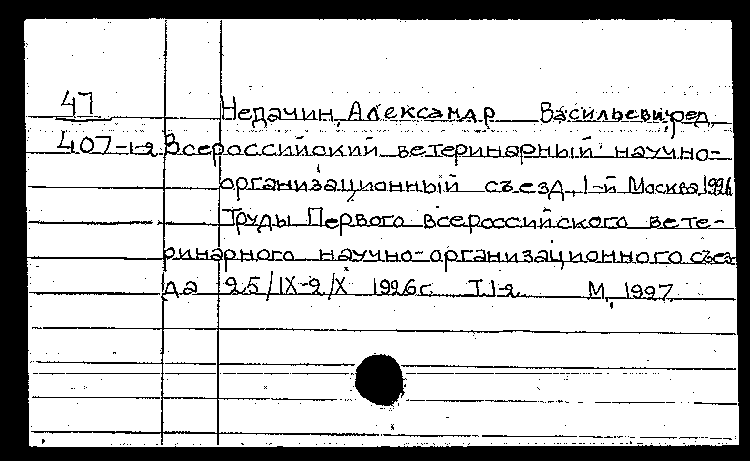 47 Недачин, Александр Васильевич, ред.
407-1-2 Всероссийский ветеринарный научно-
организационный съезд, 1-й Москва, 1926
Труды Первого всероссийского вете-
ринарного научно-организационного съез-
да 25/IX-2/X 1926г. Т.1-2. М., 1997.